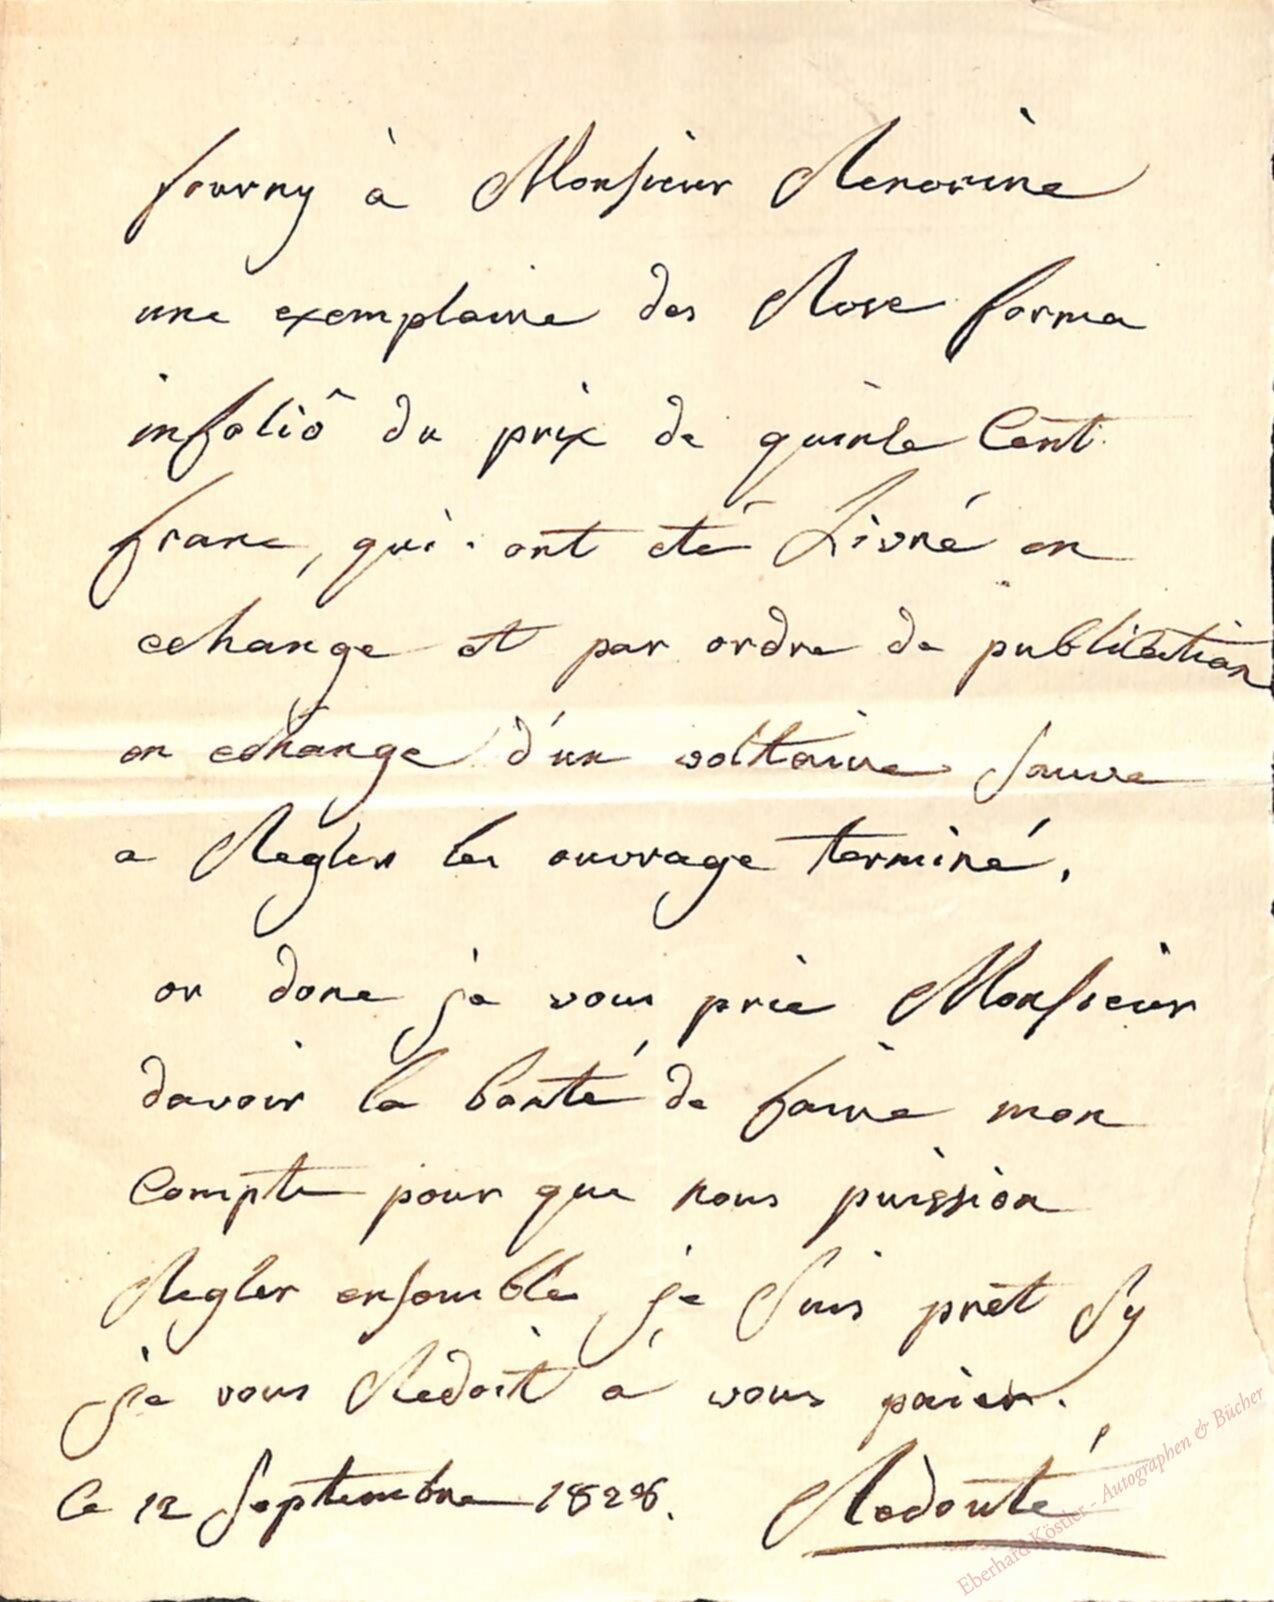 fourny à Monsieur Renorine
une exemplaire des Rose forma
infoliô du prix de quinse Cent
franc, qui ont eté Livré en
echange et par ordre de publication
en echange d'un voltaire sauve
a Regler les ouvrage terminé.
on donc je vous prie Monsieur
davoir la bonté de faire mon
Compte pour que nous puission
Regler ensemble je suis prèt Sy
je vous Redoit à vous paier.
le 12 Septembre 1828. Redouté
Eberhard Köstler - Autographen & Bücher